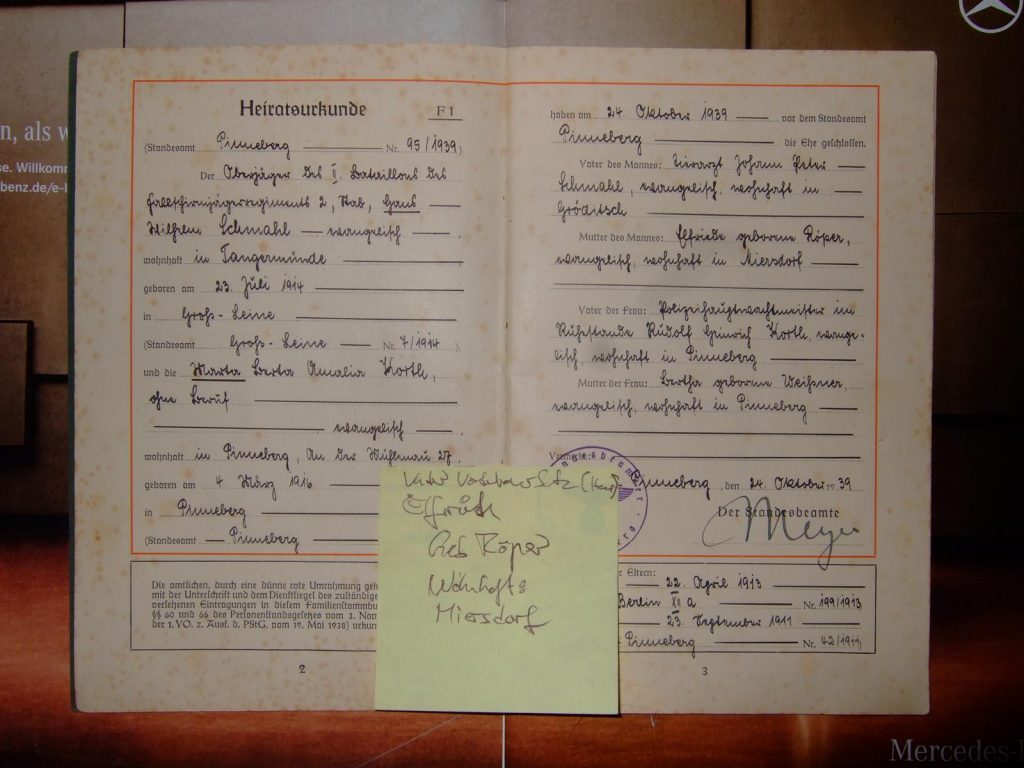 Heiratsurkunde F1
(Standesamt Pinneberg Nr. 95/1939)
Der Oberjäger des II. Bataillons des
Fallschirmjägerregiments 2, Stab, Hans
Wilhelm Schmahl evangelisch
wohnhaft in Tangermünde
geboren am 23. Juli 1914
in Groß-Leine
(Standesamt Groß-Leine Nr. 7/1914),
und die Marta Berta Amalia Korth,
ohne Beruf
evangelisch
wohnhaft in Pinneberg, An der Mühlenau 27,
geboren am 4. März 1916
in Pinneberg
(Standesamt Pinneberg
Die amtlichen, durch eine dünne rote Umrahmung
mit der Unterschrift und dem Dienstsiegel des zuständige
versehenen Eintragungen in diesem Familienstammbu
§§ 60 und 66 des Personenstandsgesetzes vom 3. Nov
der 1. VO. z. Ausf. d. PStG. vom 19. Mai 1938)
2
haben am 24. Oktober 1939 vor dem Standesamt
Pinneberg die Ehe geschlossen.
Vater des Mannes: Tierarzt Johann Peter
Schmahl, evangelisch, wohnhaft in
Gröditsch
Mutter des Mannes: Elfriede geborene Röper,
evangelisch, wohnhaft in Miersdorf
Vater der Frau: Polizeihauptwachtmeister im
Ruhestande Rudolf Heinrich Korth, evange-
lisch, wohnhaft in Pinneberg
Mutter der Frau: Bertha geborene Meißner,
evangelisch, wohnhaft in Pinneberg
Pinneberg, den 24. Oktober 1939
Der Standesbeamte
Meyer
r Eltern:
22. April 1913
Berlin XII a Nr. 199/1913
23. September 1911
Pinneberg Nr. 42/1911)
3
Geb Röper
Wohnhaft
Miersdorf
n, als w
se. Willkomm
benz.de/e-l
Mercedes-